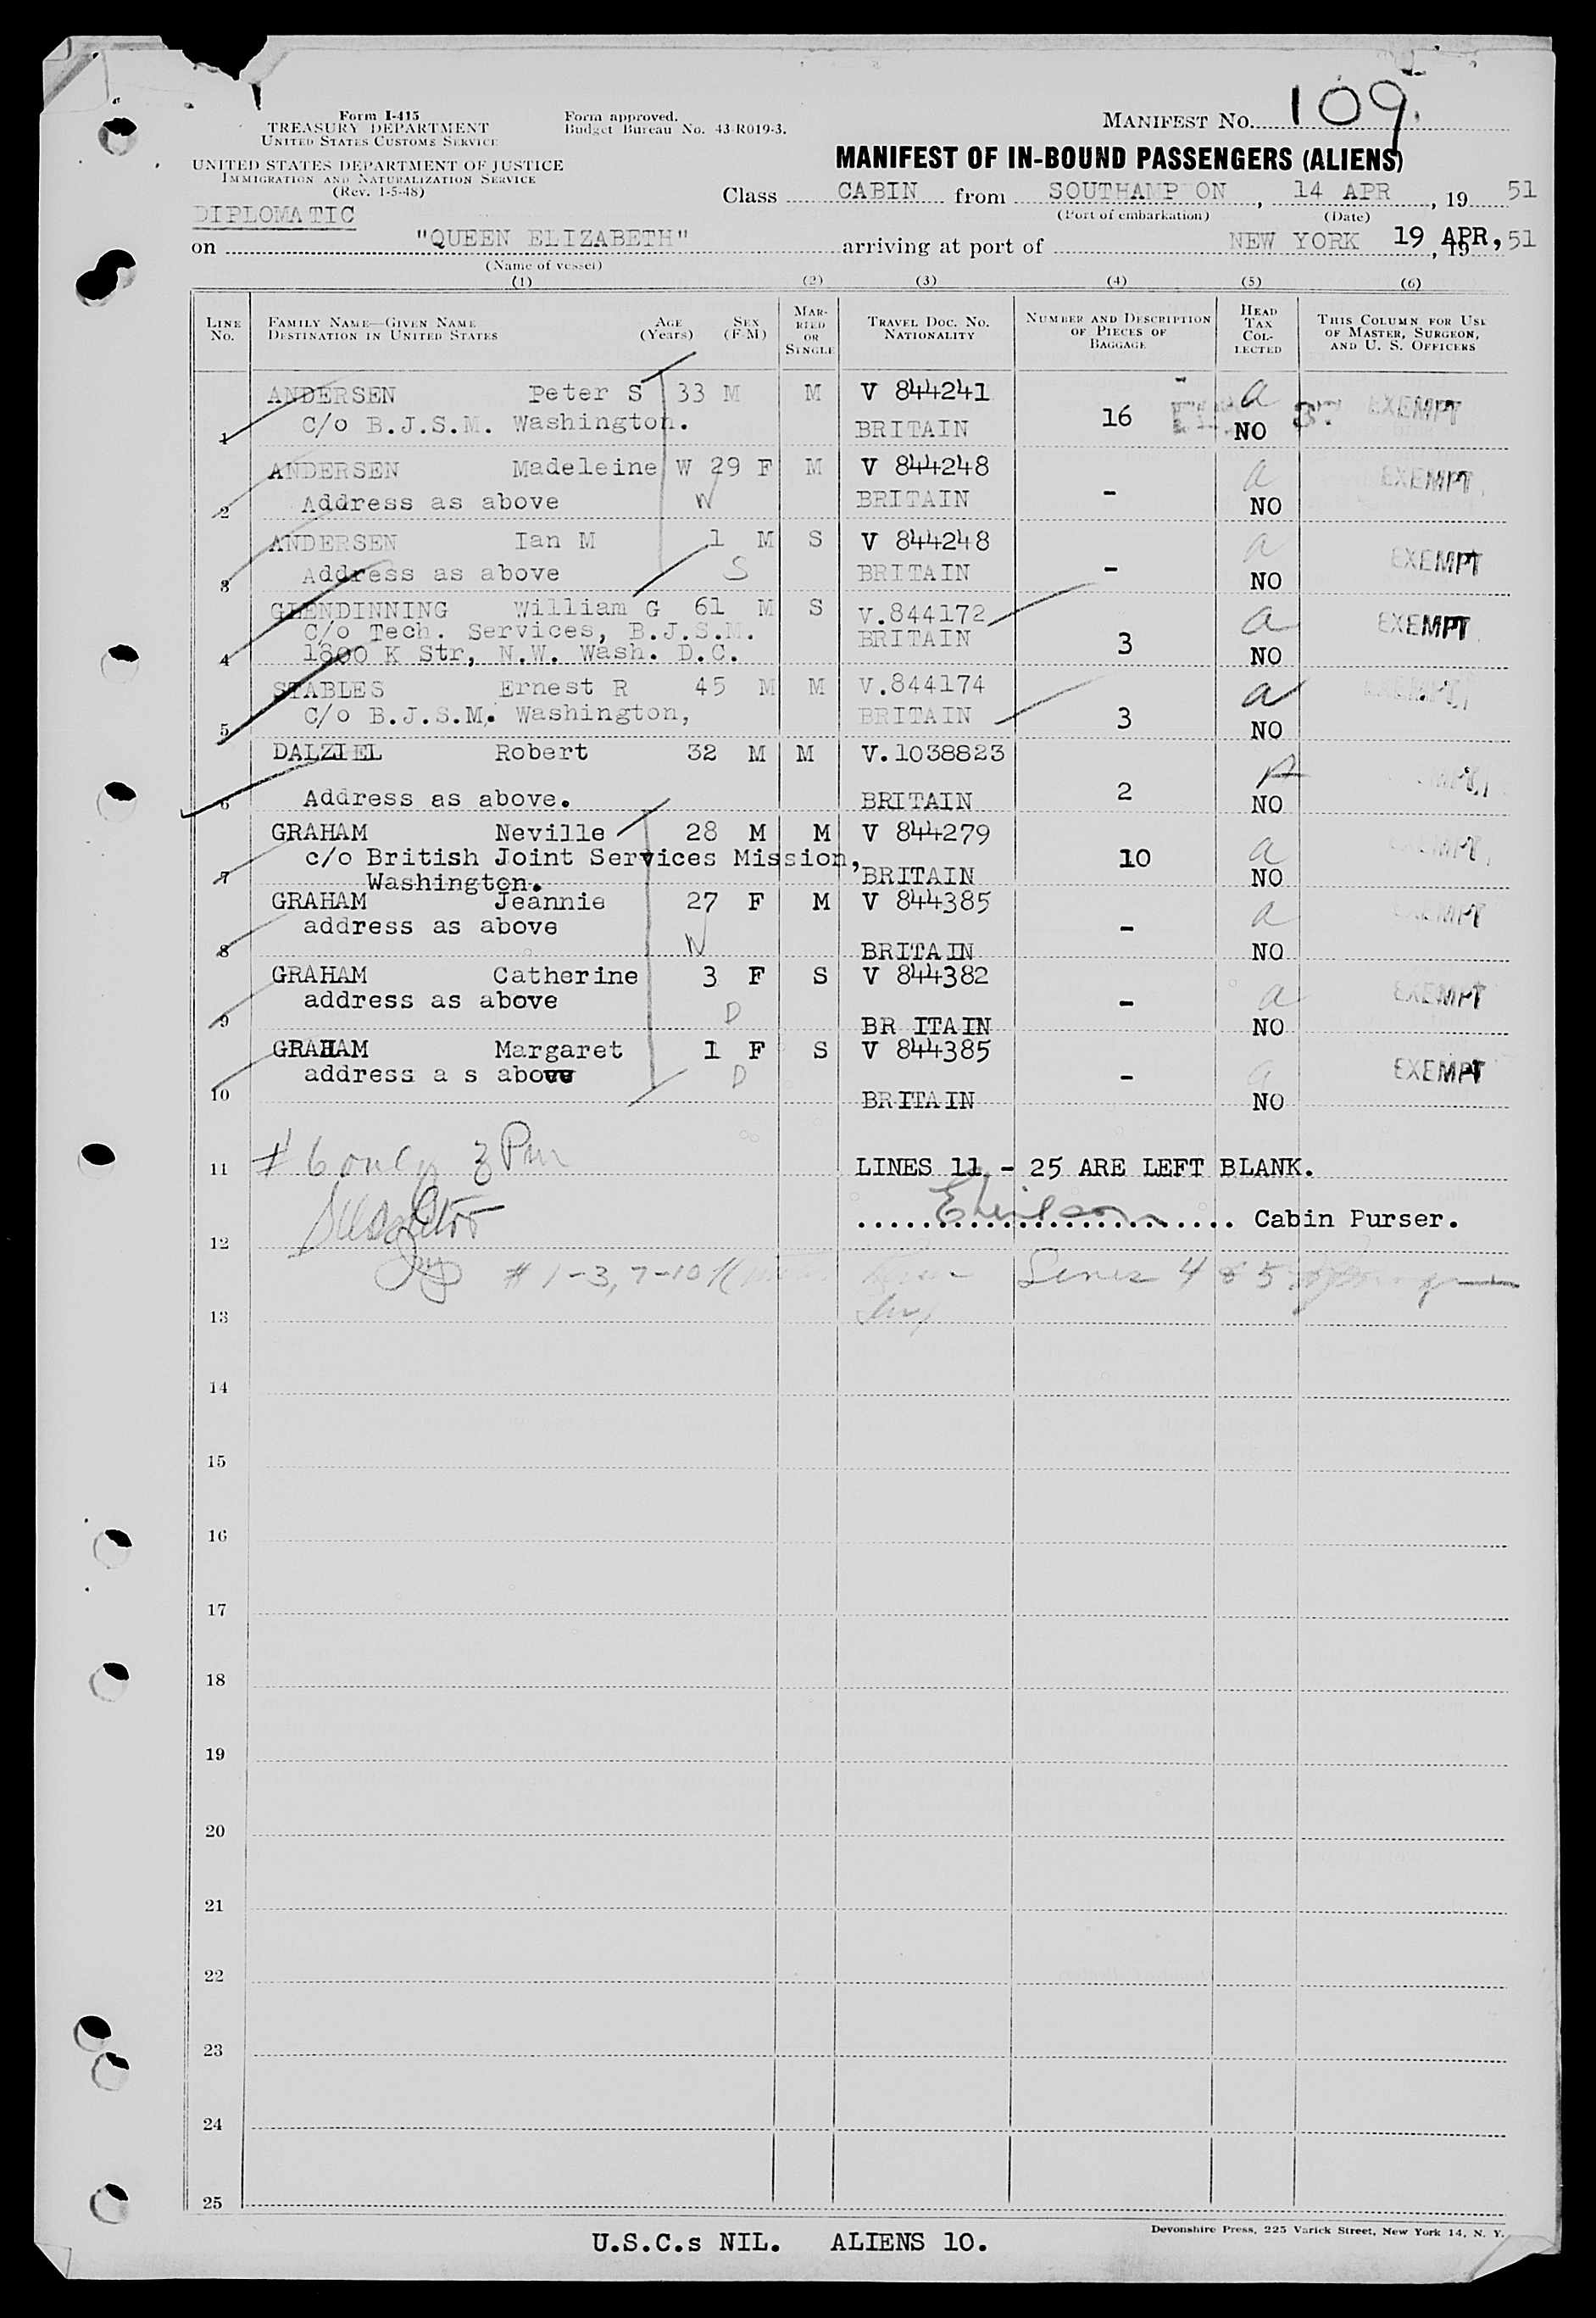 Form I-415
TREASURY DEPARTMENT
UNITED STATES CUSTOMS SERVICE
Form approved.
Budget Bureau No. 43-R019-3.
MANIFEST NO. 109.
UNITED STATES DEPARTMENT OF JUSTICE
IMMIGRATION AND NATURALIZATION SERVICE
(Rev. 1-5-48)
MANIFEST OF IN-BOUND PASSENGERS (ALIENS)
Class CABIN from SOUTHAMP ON, 14 APR, 19 51
(Port of embarkation) (Date)
DIPLOMATIC
on "QUEEN ELIZABETH" arriving at port of NEW YORK 19 APR, 19 51
(Name of vessel)
(1) (2) (3) (4) (5) (6)
LINE NO. FAMILY NAME—GIVEN NAME DESTINATION IN UNITED STATES AGE (Years) SEX (F-M) MARRIED OR SINGLE TRAVEL DOC. NO. NATIONALITY NUMBER AND DESCRIPTION OF PIECES OF BAGGAGE HEAD TAX COLLECTED THIS COLUMN FOR USE OF MASTER, SURGEON, AND U. S. OFFICERS
ANDERSEN Peter S 33 M M V 844241 a EXEMPT
1 C/o B.J.S.M. Washington. BRITAIN 16 NO
ANDERSEN Madeleine W 29 F M V 844248 a EXEMPT
2 Address as above W BRITAIN - NO
ANDERSEN Ian M 1 M S V 844248 a EXEMPT
3 Address as above S BRITAIN - NO
GLENDINNING William G 61 M S V.844172 a EXEMPT
C/o Tech. Services, B.J.S.M. BRITAIN
4 1800 K Str, N.W. Wash. D.C. 3 NO
STABLES Ernest R 45 M M V.844174 a EXEMPT
5 C/o B.J.S.M. Washington, BRITAIN 3 NO
DALZIEL Robert 32 M M V.1038823 A
6 Address as above. BRITAIN 2 NO
GRAHAM Neville 28 M M V 844279 a EXEMPT
c/o British Joint Services Mission, 10
7 Washington. BRITAIN NO
GRAHAM Jeannie 27 F M V 844385 a EXEMPT
address as above
8 W BRITAIN - NO
GRAHAM Catherine 3 F S V 844382 a EXEMPT
address as above
9 D BR ITAIN - NO
GRAHAM Margaret 1 F S V 844385 a EXEMPT
address a s above D
10 BRITAIN - NO
11 # 6 only 3 Pm LINES 11 - 25 ARE LEFT BLANK.
12 Cabin Purser.
# 1-3, 7-10 Lines 4 & 5
13
14
15
16
17
18
19
20
21
22
23
24
25
U.S.C.s NIL. ALIENS 10.
Devonshire Press, 225 Varick Street, New York 14, N. Y.